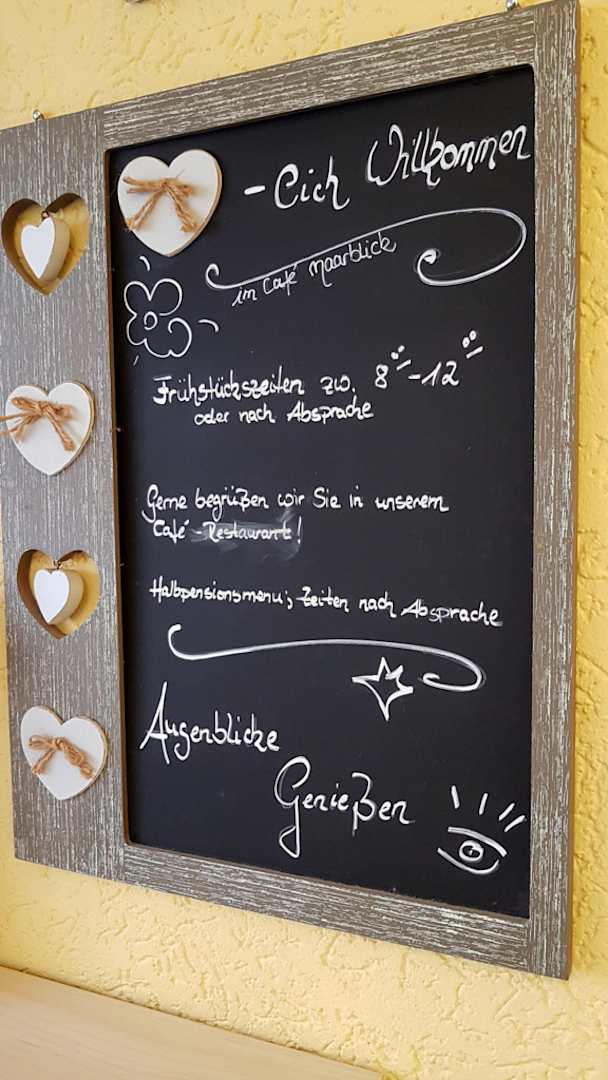 - Herzlich Willkommen
im Café Maarblick
Frühstückszeiten zw. 8°°-12°°
oder nach Absprache
Gerne begrüßen wir Sie in unserem
Café-Restaurant!
Halbpensionsmenü; Zeiten nach Absprache
Augenblicke
Genießen